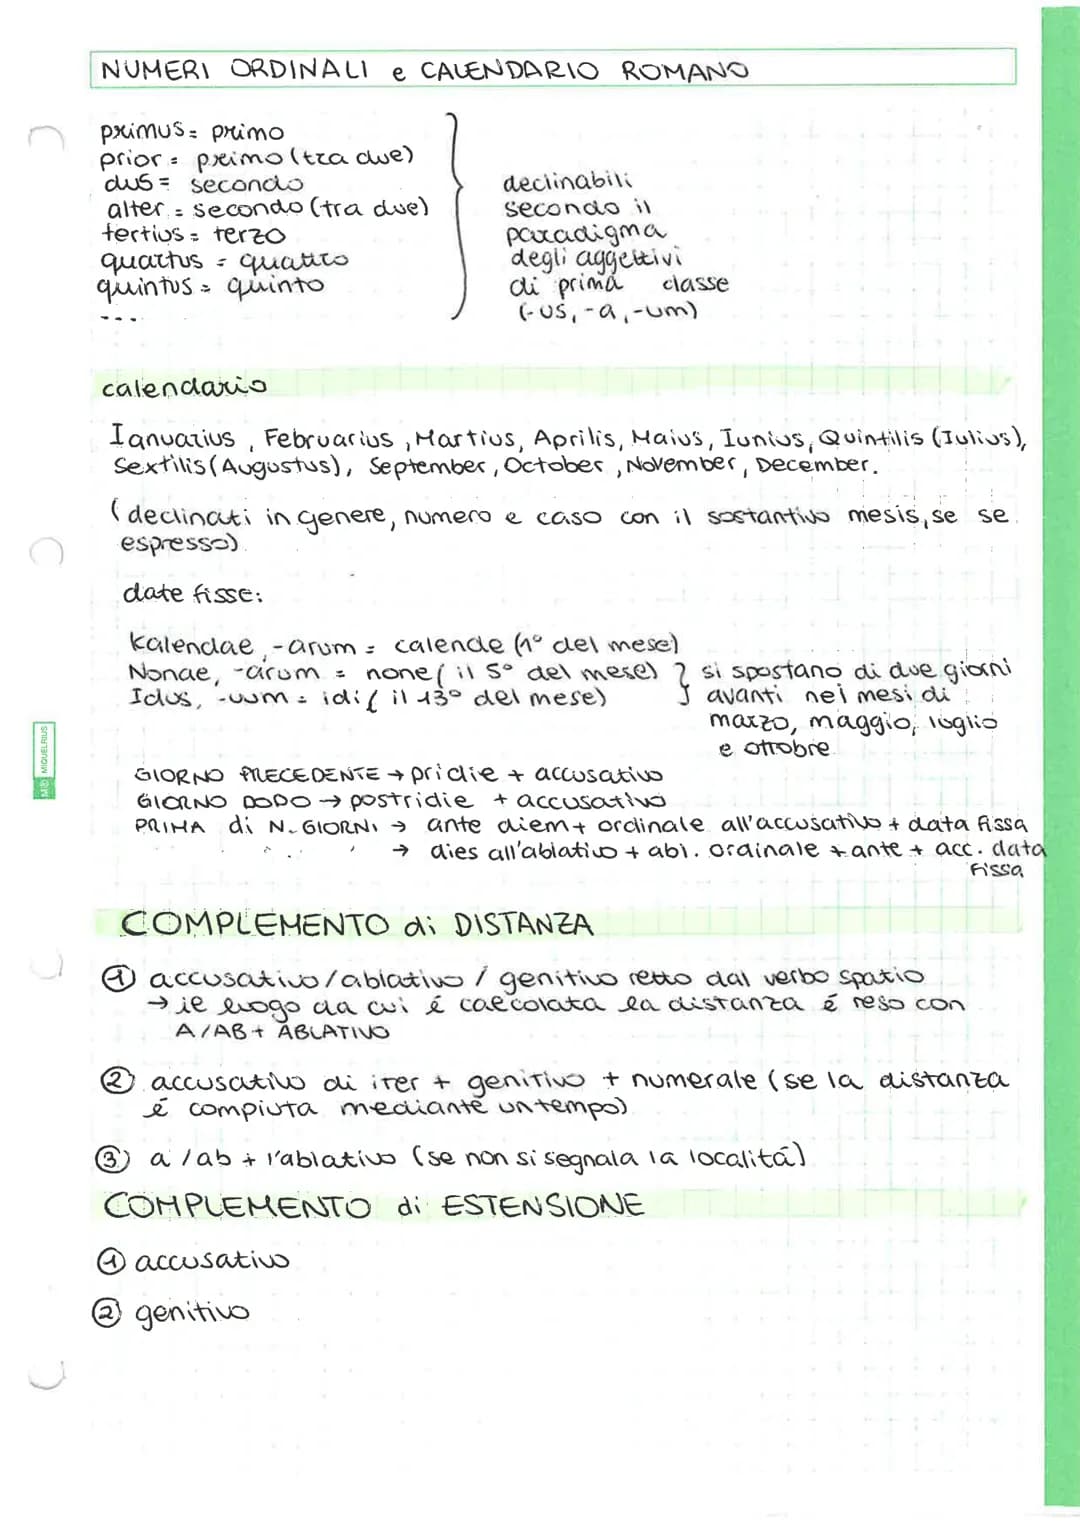 NUMERI ORDINALI e CALENDARIO ROMANO
primus = primo
prior = primo (tra due)
dus = secondo
alter = secondo (tra due)
tertius = terzo
quartus = quattro
quintus = quinto
...
declinabili
secondo il
paradigma
degli aggettivi
di prima classe
(-us, -a, -um)
calendario
Ianuarius, Februarius, Martius, Aprilis, Maius, Iunius, Quintilis (Iulius),
Sextilis (Augustus), September, October, November, December.
(declinati in genere, numero e caso con il sostantivo mesis, se se
espresso)
date fisse:
Kalendae, -arum = calende (1° del mese)
Nonae, -arum = none (il 5° del mese)
Idus, -uum = idi (il 13° del mese)
si spostano di due giorni
avanti nei mesi di
marzo, maggio, luglio
e ottobre
GIORNO PRECEDENTE → pridie + accusativo
GIORNO DODO → postridie + accusativo
PRIMA di N. GIORNI → ante diem + ordinale all'accusativo + data fissa
→ dies all'ablativo + abl. ordinale + ante + acc. data
fissa
COMPLEMENTO di DISTANZA
① accusativo / ablativo / genitivo retto dal verbo spatio
→ il luogo da cui é calcolata la distanza é reso con
A/AB + ABLATIVO
② accusativo di iter + genitivo + numerale (se la distanza
é compiuta mediante un tempo)
③ a / ab + l'ablativo (se non si segnala la località)
COMPLEMENTO di ESTENSIONE
① accusativo
② genitivo
MIQUELRIUS